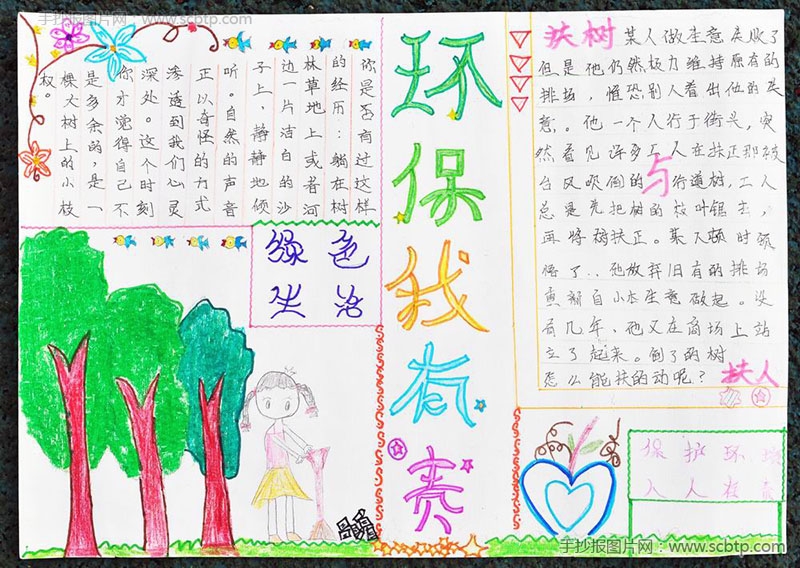 手抄报图片网：www.scbtp.com
环保我有责
你是否有过这样
的经历：躺在树
林草地上或者河
边一片洁白的沙
子上，静静地倾
听。自然的声音
正以奇怪的方式
渗透到我们心灵
深处。这个时刻
你才觉得自己不
是多余的，是一
棵大树上的小枝
权。
绿色
生活
扶树 某人做生意失败了
但是他仍然极力维持原有的
排场，惟恐别人看出他的失
意。他一个人行于街头，突
然看见许多工人在扶正那被
台风吹倒的与行道树，工人
总是先把树的枝叶锯去，
再将树扶正。某人顿时领
悟了..他放弃旧有的排场
重新自小本生意做起。没
有几年、他又在商场上站
立了起来。倒了的树
怎么能扶的动呢？扶人
保护环境
人人有责
手抄报图片网：www.scbtp.com